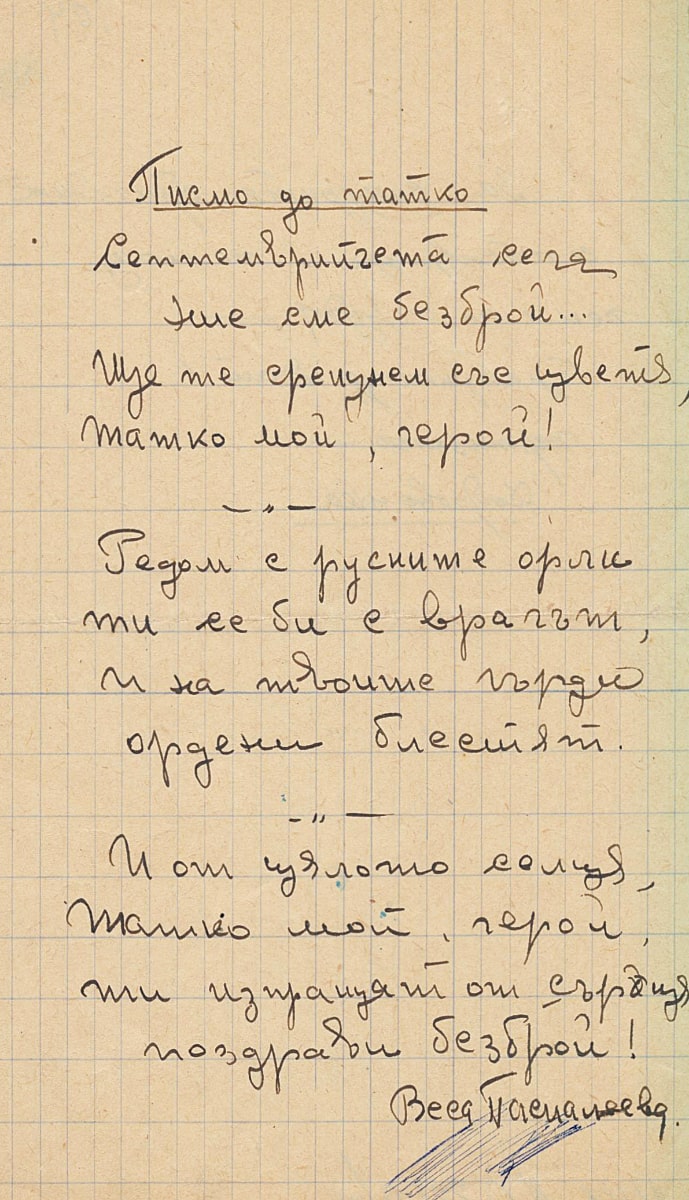 Писмо до татко
Септемврийчета сега
ние сме безброй...
Ще те срещнем със цветя,
татко мой, герой!
– „ –
Редом с русните орли
ти се би с врагът,
и на твоите гърди
ордени блестят.
– „ –
И от цялото селца,
татко мой, герой,
ти изпращат от сърдца
поздрави безброй!
Веса Паспалеева.